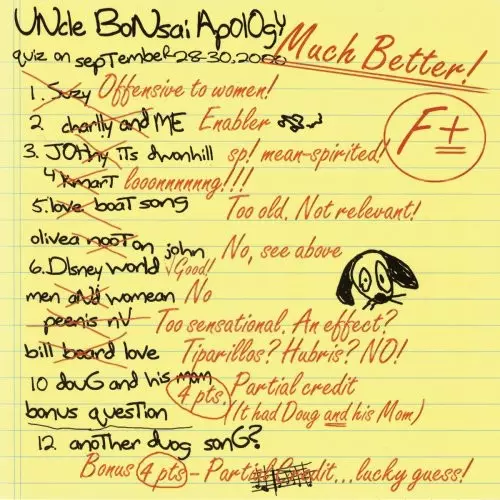 UNcle BoNsai ApOlOgy
quiz on sepTember 28-30, 2000
Much Better!
F±
1. Suzy Offensive to women!
2. charlly and ME Enabler
3. JOthny iTs dwonhill sp! mean-spirited!
4 KmarT looonnnnnng!!!
5. love boaT song Too old. Not relevant!
olivea nooTon john No, see above
6. DIsney world √Good!
men aNd womean No
peenis nV Too sensational. An effect?
bill board love Tiparillos? Hubris? NO!
10 douG and his mom 4 pts. Partial credit
bonus quesTion (It had Doug and his Mom)
12. anoTher duog sonG?
Bonus 4 pts - Partial Credit...lucky guess!